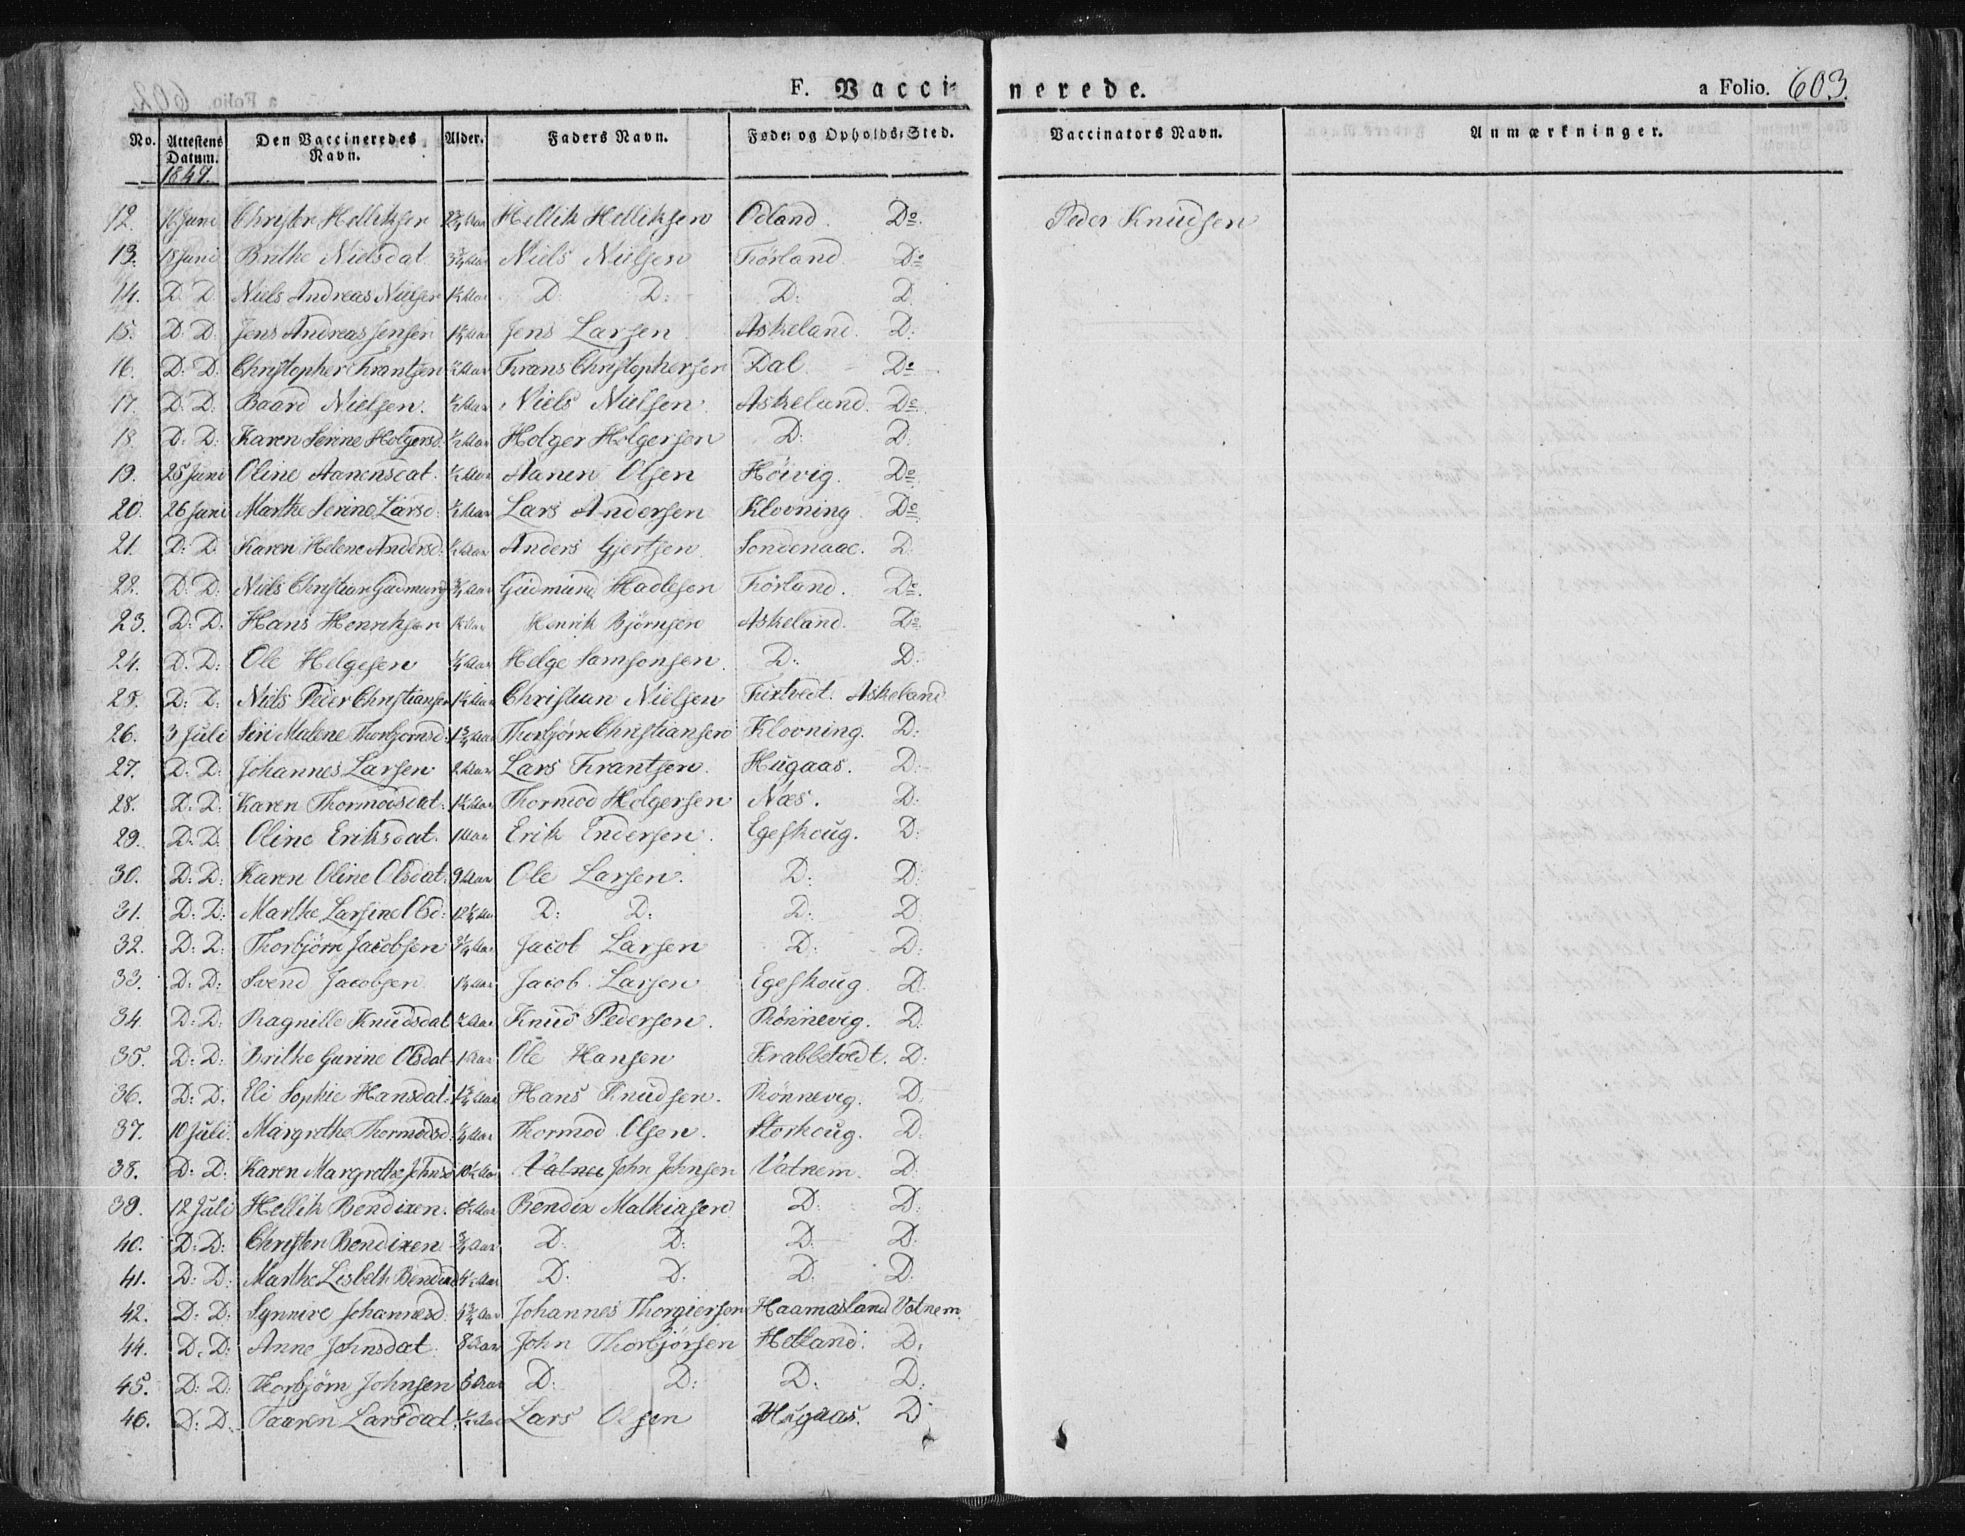 F. Vaccinerede. a Folio. 603.
No. Attestens Datum. Den Vaccineredes Navn. Alder. Faders Navn. Føde- og Opholds-Sted. Vaccinators Navn. Anmærkninger.
1849.
12. 16 Juni Christen Helliksen Aar Hellik Helliksen Odland. Do. Peder Knudsen
13. 18 Juni Brithe Nielsdat. 3 3/4 Aar Niels Nielsen Førland Do
14. D: D. Niels Andreas Nielsen Aar D: D: D: D.
15. D: D: Jens Andreas Jensen Aar Jens Larsen Askeland. D:
16. D: D. Christopher Frantzen Aar Frans Christophersen Dal Do
17. D: D. Baard Nielsen. Aar Niels Nielsen Askeland. Do
18 D: D: Karen Serine Holgersd. 1/2 Aar Holger Holgersen D: D.
19. 25 Juni Oline Aanensdat. Aar Aanen Olsen Høivig. Do
20. 26 Juni Marthe Serine Larsd. Aar Lars Andersen Klovning. Do
21. D: D. Karen Helene Andersd. Aar Anders Gjertsen Sondenaae. D.
22. D: D: Niels Christian Gudmunds 3/4 Aar Gudmund Hadlesen Førland. Do.
23. D: D. Hans Henriksen Aar Henrik Bjørnsen Askeland. Do
24. D. D: Ole Helgesen Aar Helge Samsonsen D: D:
25. D: D: Niels Peder Christiansen Aar Christian Nielsen Tuxtvedt. Askeland
26. 3 Juli Siri Malene Thorbjornsd. 1 3/4 Aar Thorbjørn Christiansen Klovning. D:
27. D: D: Johannes Larsen 2 Aar Lars Frantzen. Hugaas. D:
28. D: D: Karen Thormodsdat. Aar Thormod Holgersen Næs. D:
29. D: D. Oline Eriksdat. 1 Aar Erik Endersen. Egeskoug. D:
30. D: D: Karen Oline Olsdat. 9 Aar Ole Larsen. D: D:
31. D: D: Marthe Larsine Olsd: Aar D: D: D: D:
32. D: D. Thorbjørn Jacobsen 3 1/4 Aar Jacob Larsen D: D:
33. D: D: Svend Jacobsen Aar Jacob Larsen Egeskoug D.
34. D: D: Ragnille Knudsdat Aar Knud Pedersen. Rönnevig. D.
35. D: D: Brithe Gurine Olsdat. 1 Aar Ole Hansen Krabbetvedt. D:
36. D: D. Eli Sophie Hansdat. Aar Hans Knudsen. Rönnevig. D:
37. 10 Juli. Margrethe Thormodsd. Aar Thormod Olsen. Storkoug. D:
38. D: D. Karen Margrethe Johnsd Aar John Johnsen Vatnem. D.
39. 12 Juli Hellik Bendixen. Aar Bendix Mathiasen D: D:
40. D: D: Christen Bendixen 3/4 Aar D: D: D: D:
41. D: D: Marthe Lisbeth Bendixd Aar D: D: D: D:
42. D: D: Synnive Johannesd. Aar Johannes Thorgiersen Haamasland Vatnem.
44. D. D: Anne Johnsdat. 8 Aar John Thorbjörsen Hetland. D:
45. D: D: Thorbjørn Johnsen Aar D: D: D: D:
46. D: D. Taaren Larsdat. Aar Lars Olsen Hugaas. D